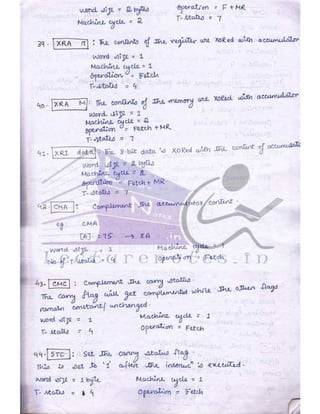 word size = 2 bytes operation = F + MR
Machine cycle = 2 T-states = 7
39. XRA R : The contents of the register are XORed with accumulator
word size = 1
Machine cycle = 1
operation = Fetch
T-states = 4
40. XRA M : The contents of the memory are XORed with accumulator
word size = 1
Machine cycle = 2
operation = Fetch + MR
T-states = 7
41. XRI data : The 8-bit data is XORed with the content of accumulator
Word size = 2 bytes
Machine cycle = 2
operation = Fetch + MR
T-states = 7
42. CMA : Complement the accumulator content.
eg. CMA
[A] = 75 → 8A
word size = 1 Machine cycle = 1
No. of T-states = 4 operation = Fetch
43. CMC : Complement the carry status.
The carry flag will get complemented while the other flags
remain constant / unchanged.
word size = 1 Machine cycle = 1
T-states = 4 Operation = Fetch
44. STC : Set the carry status flag.
This is set to '1' after the instruc^n is executed.
word size = 1 byte Machine cycle = 1
T-states = 4 Operation = Fetch